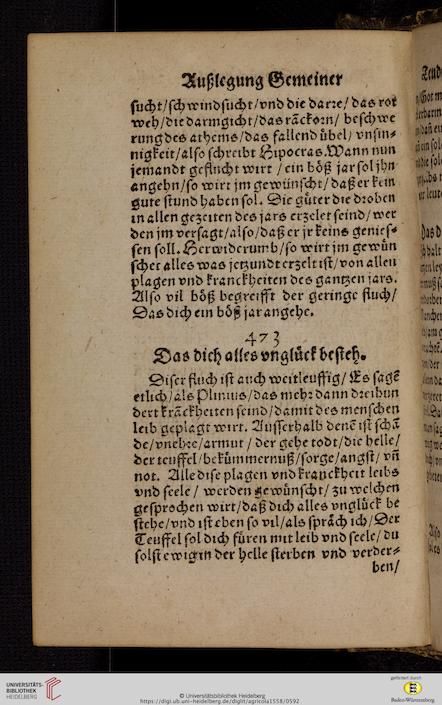 Außlegung Gemeiner
sucht/schwindsucht/vnd die darre/das rot
weh/die darmgicht/das rāckorn/beschwe
rung des athems/das fallend übel/vnsin⸗
nigkeit/also schreibt Hipocras. Wann nun
jemandt geflucht wirt/ein böß jar sol jhn
angehn/so wirt jm gewünscht/daß er kein
gute stund haben sol. Die güter die droben
in allen gezeiten des jars erzelet seind/wer
den jm versagt/also/daß er jr keins genies⸗
sen soll. Herwiderumb/so wirt jm gewün
schet alles was jetzundt erzelt ist/von allen
plagen vnd kranckheiten des gantzen jars.
Also vil böß begreifft der geringe fluch/
Das dich ein böß jar angehe.
473
Das dich alles vnglück besteh.
Diser fluch ist auch weitleuffig/Es sagē
etlich/als Plinius/das mehr dann dreihun
dert krāckheiten seind/damit des menschen
leib geplagt wirt. Ausserhalb denē ist schā
de/vnehre/armut/der gehe todt/die helle/
der teuffel/bekümmernuß/sorge/angst/vñ
not. Alle dise plagen vnd kranckheit leibs
vnd seele/werden gewünscht/zu welchen
gesprochen wirt/daß dich alles vnglück be
stehe/vnd ist eben so vil/als spräch ich/Der
Teuffel sol dich füren mit leib vnd seele/du
solst ewig in der helle sterben vnd verder⸗
ben/
UNIVERSITÄTS-
BIBLIOTHEK
HEIDELBERG
© Universitätsbibliothek Heidelberg
https://digi.ub.uni-heidelberg.de/diglit/agricola1558/0592
gefördert durch
Baden-Württemberg